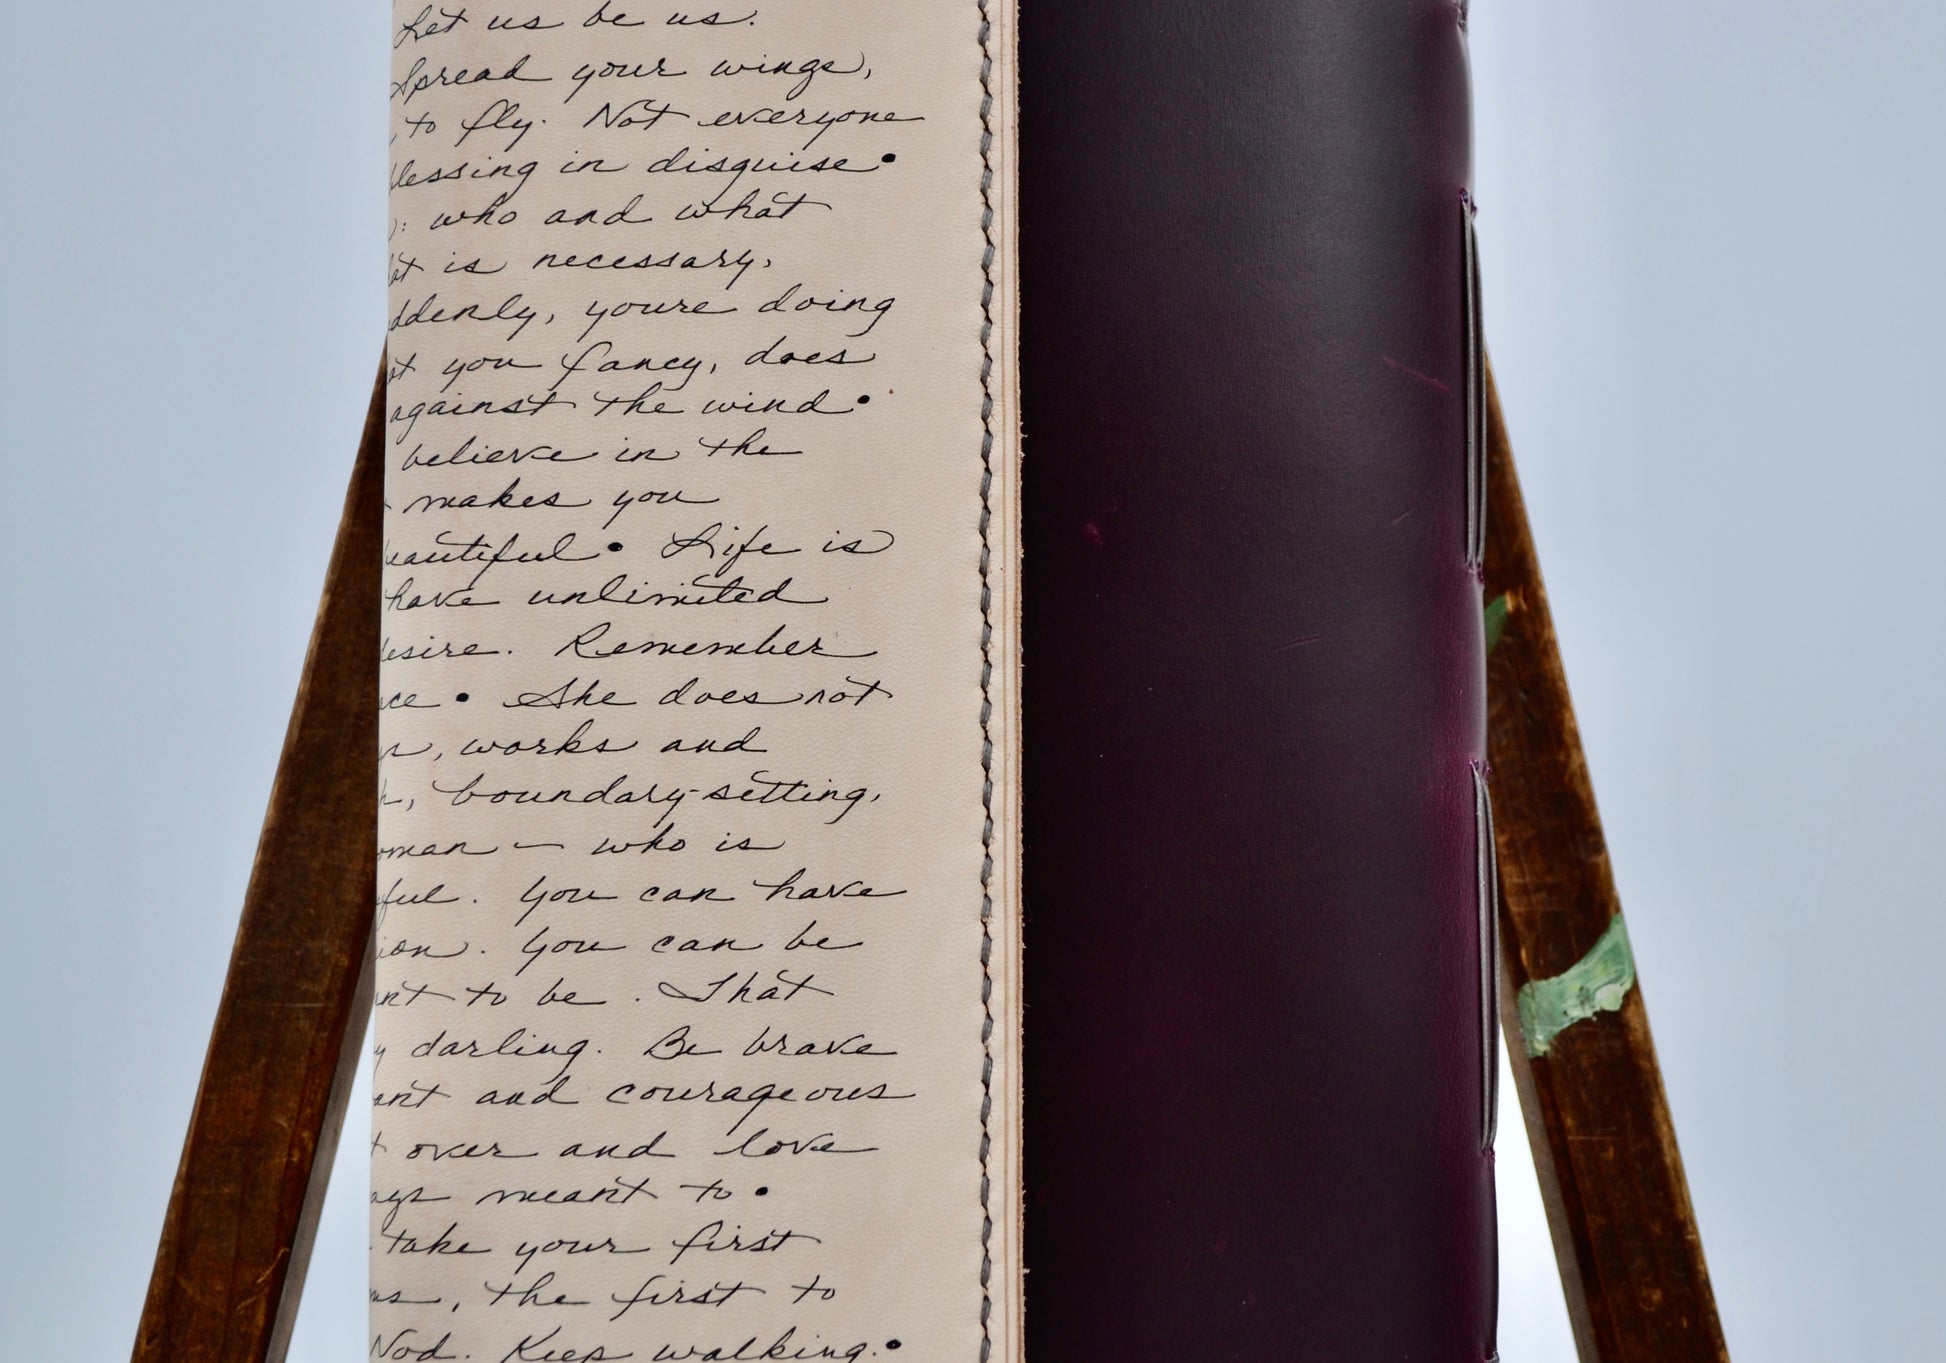 Let us be us.
Spread your wings,
to fly. Not everyone
blessing in disguise •
: who and what
is necessary,
ddenly, youre doing
you fancy, does
against the wind •
believe in the
makes you
eautiful • Life is
have unlimited
desire. Remember
ce • She does not
, works and
h, boundary-setting,
oman — who is
ful. You can have
ion. You can be
nt to be. That
y darling. Be brave
ant and courageous
t over and love
ays meant to •
take your first
ns, the first to
Nod. Keep walking. •